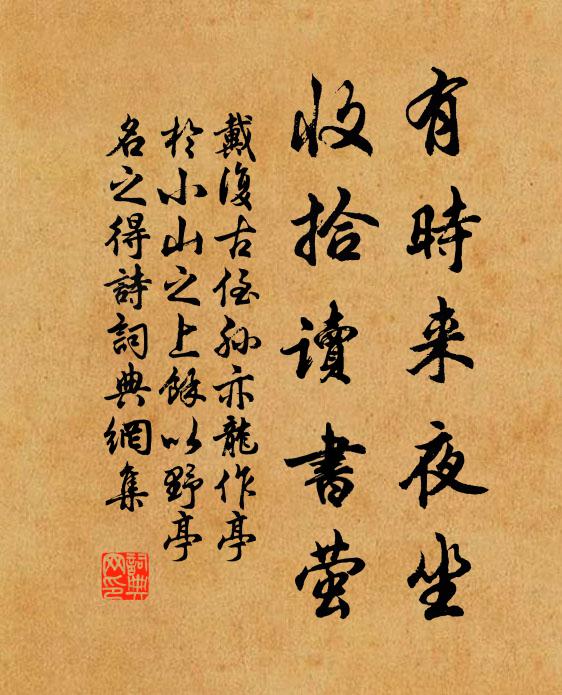 有時来夜坐
收拾讀書螢
戴復古侄孫亦龍作亭
於小山之上餘以野亭
名之得詩詞典網集
詞典网印